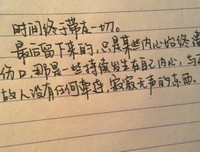 时间终于带走一切。
最后留下来的,只是某些内心的终
伤口,那是一些持续发生在自己内心,与
故人没有任何牵连,寂寂无声的东西。